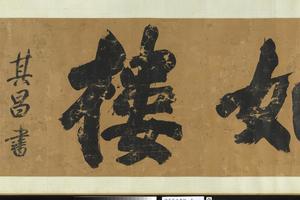 如樓
其昌書